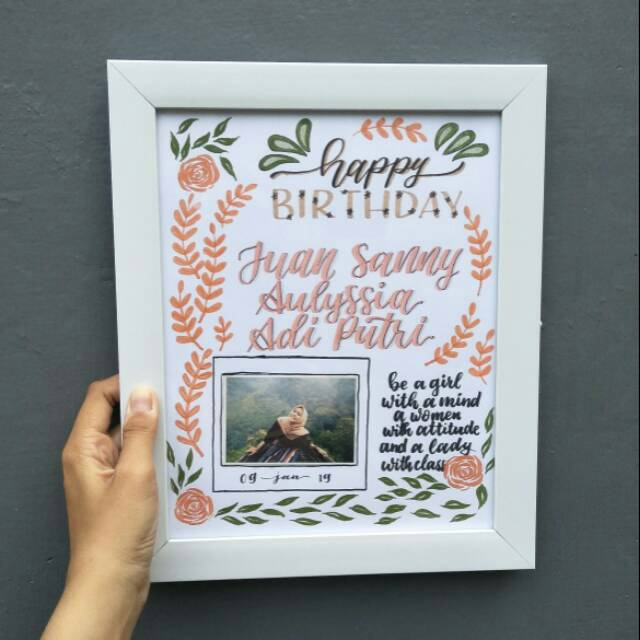 happy
BIRTHDAY
Juan Sanny
Aulyssia
Adi Putri
be a girl
with a mind
a women
with attitude
and a lady
with class
09-jan-19